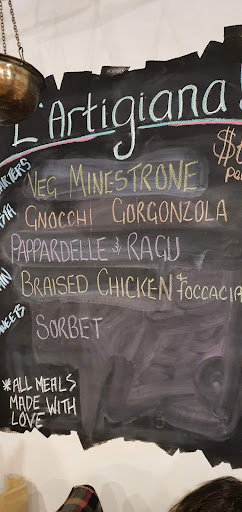 L'Artigiana
VEG MINESTRONE
GNOCCHI GORGONZOLA
PAPPARDELLE & RAGU
BRAISED CHICKEN & FOCCACIA
SORBET
*ALL MEALS
MADE WITH
LOVE